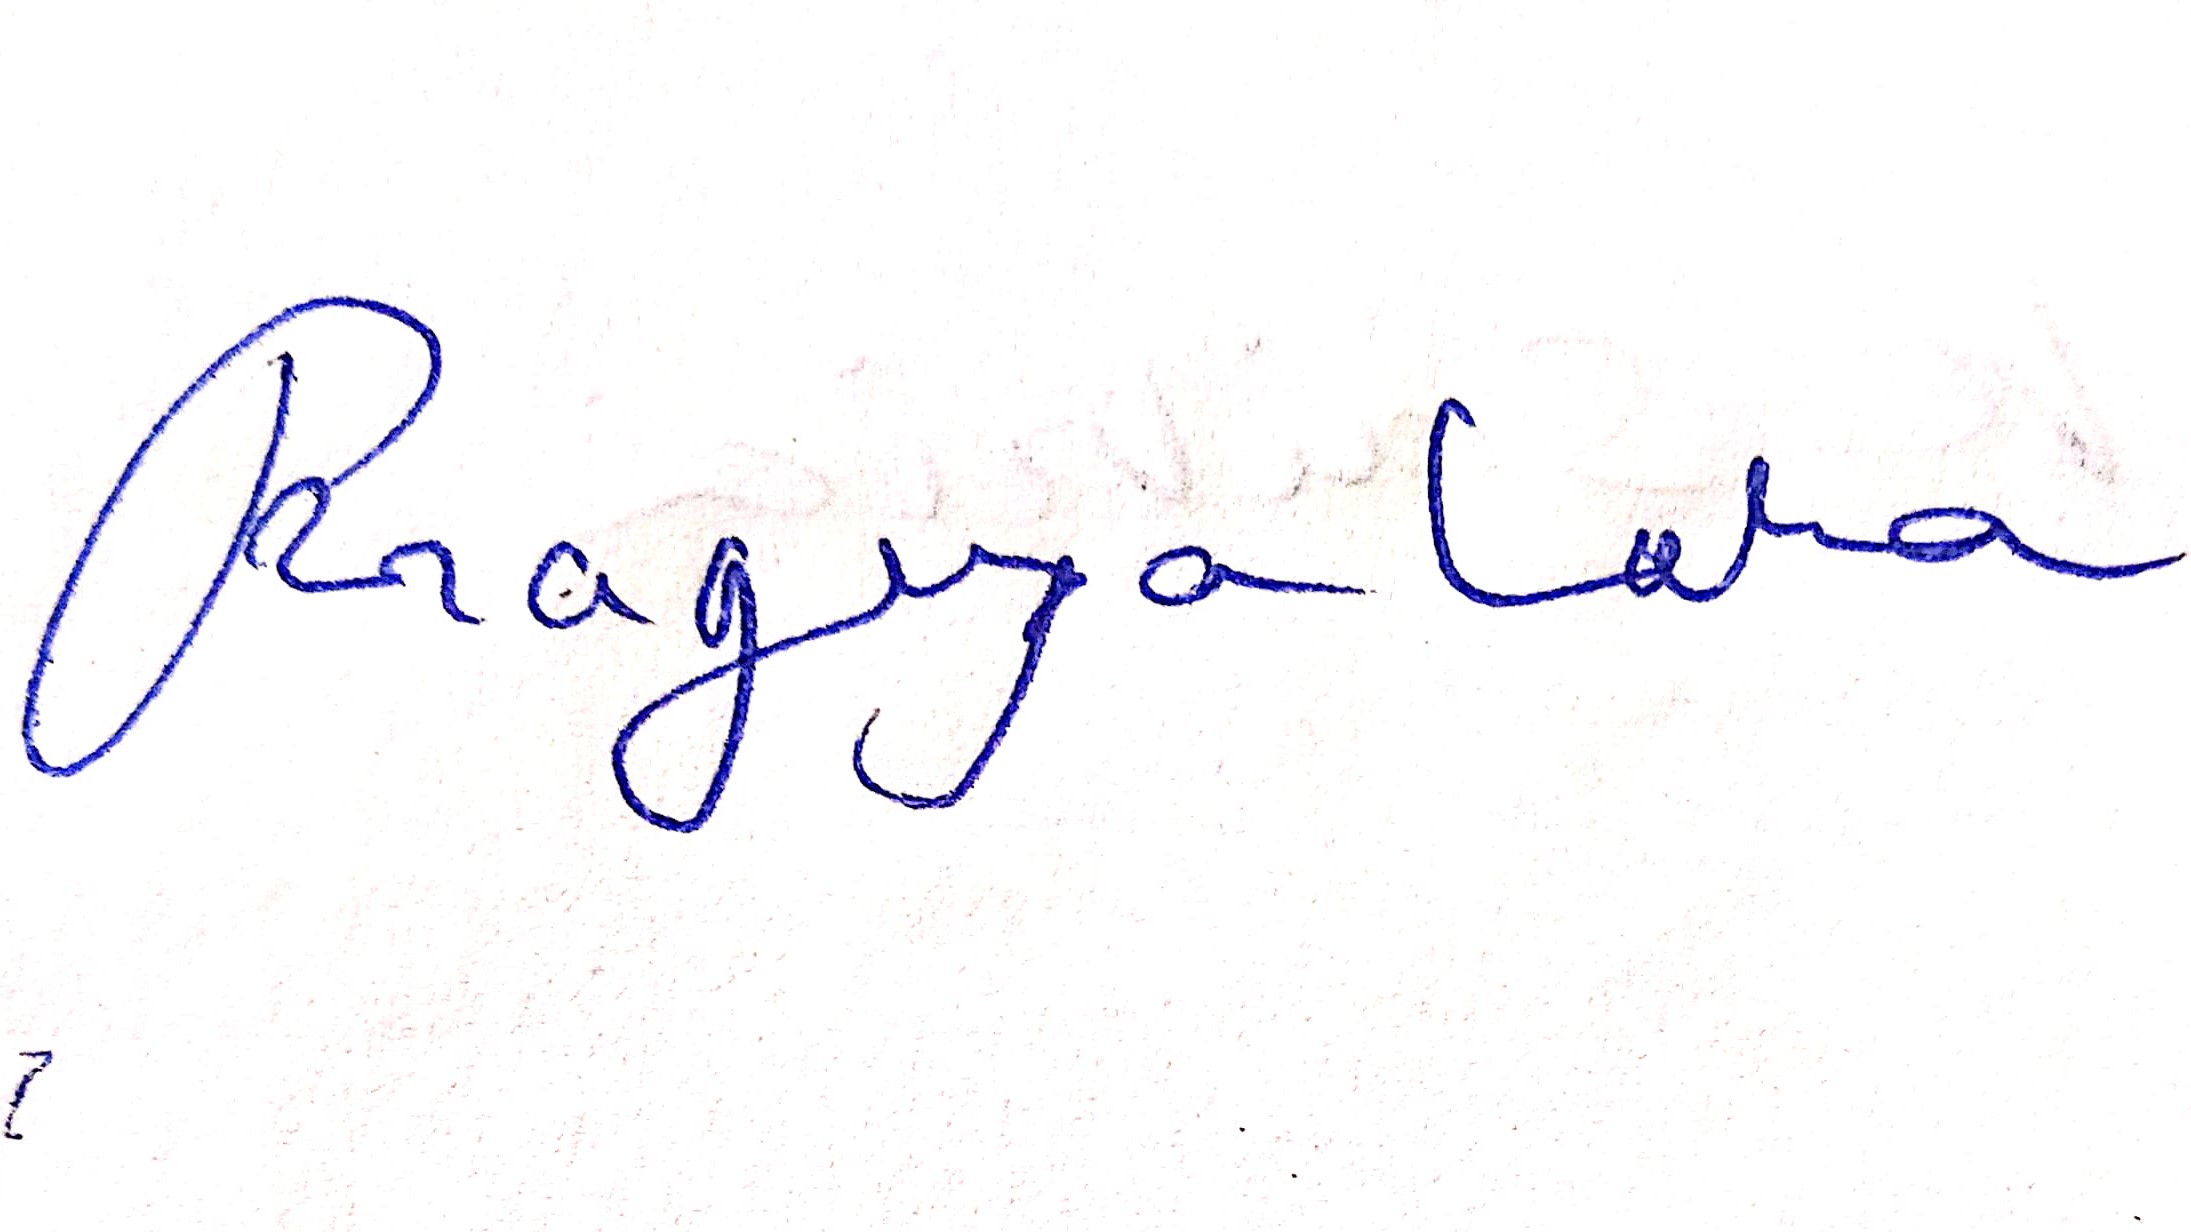 Pragya Lata